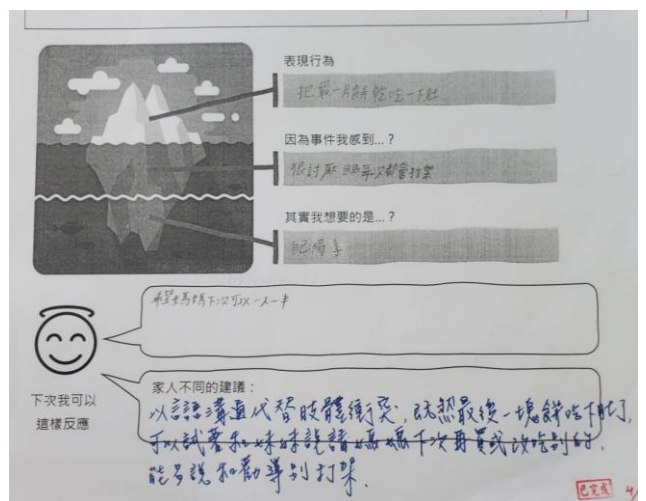 表現行為
把最一片餅乾吃一下肚
因為事件我感到...？
很討厭 因為每次都會打架
其實我想要的是...？
希望媽媽下次可以一人一半
下次我可以
這樣反應
家人不同的建議：
以言語溝通代替肢體衝突，既然最後一塊餅吃下肚了，
可以試著和妹妹說請媽媽下次再買或改吃別的，
能多說和勸導別打架．
已完成